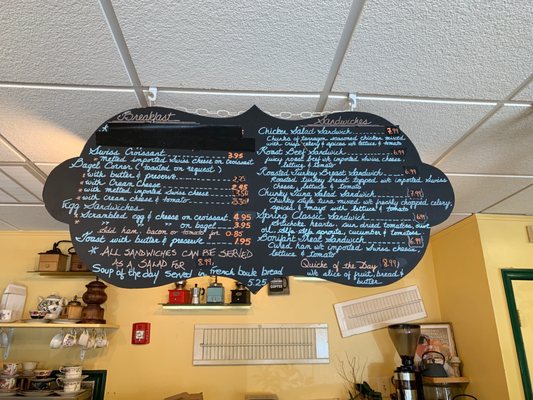 Breakfast
Swiss Croissant 3.95
Melted imported Swiss cheese on croissant
Bagel Corner (toasted on request)
with butter & preserve 2.25
with Cream Cheese
with melted imported Swiss cheese
with cream cheese & tomato
Egg Sandwiches
Scrambled egg & cheese on croissant 4.95
on bagel 3.95
Add ham, bacon or tomato for 0.85
Toast with butter & preserve 1.95
* ALL SANDWICHES CAN BE SERVED
AS A SALAD FOR 8.99
Soup of the day served in french bouk bread
5.25
Sandwiches
Chicken Salad Sandwich 7.99
Chunks of tarragon seasoned chicken mixed
with crisp celery & spices w lettuce & tomato
Roast Beef Sandwich 6.99
juicy roast beef w imported Swiss cheese
lettuce & tomato
Roasted Turkey Breast Sandwich 6.99
Roasted Turkey breast topped w imported Swiss
cheese, lettuce & tomato
Chunky Tuna Salad Sandwich 7.99
Chunky style tuna mixed w freshly chopped celery,
spices & mayo with lettuce & tomato
Spring Classic Sandwich 6.99
Artichoke hearts, sun dried tomatoes, olive
oil, cucumber,
Gourmet Treat Sandwich 6.99
Cured Ham w imported Swiss cheese,
lettuce & tomato
Quiche of the Day 8.99
w slice of fruit, bread &
butter
COFFEE